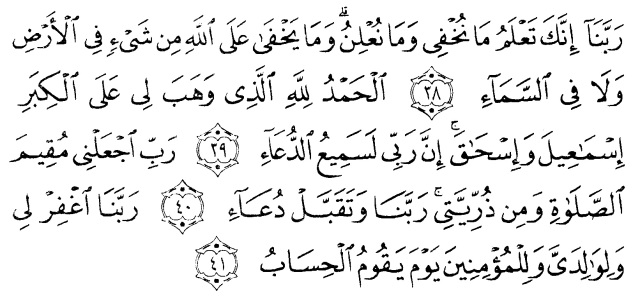 رَبَّنَآ إِنَّكَ تَعْلَمُ مَا نُخْفِى وَمَا نُعْلِنُ ۗ وَمَا يَخْفَىٰ عَلَى ٱللَّهِ مِن شَىْءٍ فِى ٱلْأَرْضِ
وَلَا فِى ٱلسَّمَآءِ ٣٨ ٱلْحَمْدُ لِلَّهِ ٱلَّذِى وَهَبَ لِى عَلَى ٱلْكِبَرِ
إِسْمَـٰعِيلَ وَإِسْحَـٰقَ ۚ إِنَّ رَبِّى لَسَمِيعُ ٱلدُّعَآءِ ٣٩ رَبِّ ٱجْعَلْنِى مُقِيمَ
ٱلصَّلَوٰةِ وَمِن ذُرِّيَّتِى ۚ رَبَّنَا وَتَقَبَّلْ دُعَآءِ ٤٠ رَبَّنَا ٱغْفِرْ لِى
وَلِوَٰلِدَىَّ وَلِلْمُؤْمِنِينَ يَوْمَ يَقُومُ ٱلْحِسَابُ ٤١